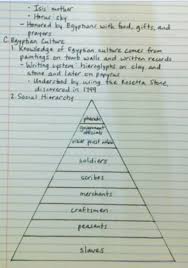 - Isis: mother
- Horus: sky
- Honored by Egyptians with food, gifts, and
prayers
C. Egyptian Culture
1. Knowledge of Egyptian culture comes from
paintings on tomb walls and written records
- Writing system: hieroglyphs on clay and
stone and later on papyrus
- Understood by using the Rosetta Stone,
discovered in 1799
2. Social Hierarchy
pharaoh
government
officials
soldiers
scribes
merchants
craftsmen
peasants
slaves